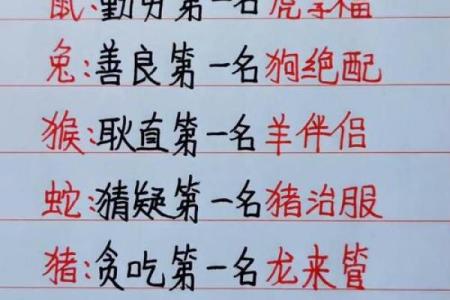 鼠:勤劳第一名虎幸福
兔:善良第一名狗绝配
猴:耿直第一名羊伴侣
蛇:猜疑第一名猪治服
猪:贪吃第一名龙来管